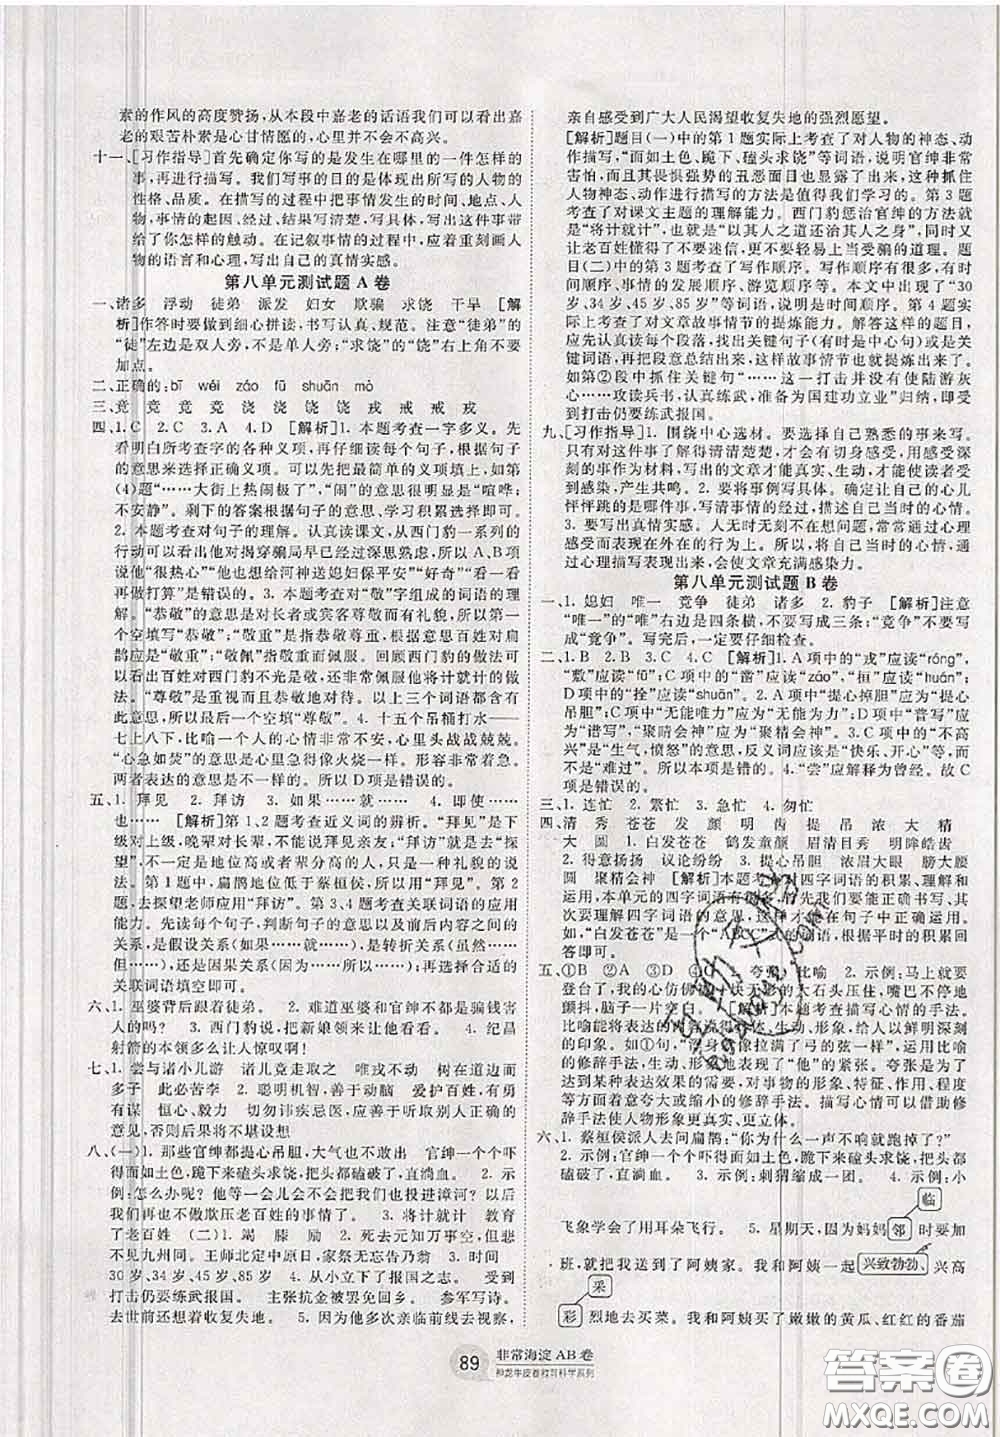 素的作风的高度赞扬,从本段中嘉老的话语我们可以看出嘉
老的艰苦朴素是心甘情愿的,心里并不会不高兴。
十一、[习作指导]首先确定你写的是发生在哪里的一件怎样的
事,再进行描写。我们写事的目的是体现出所写的人物的
性格、品质。在描写的过程中要把事情发生的时间、地点、人
物,事情的起因、经过、结果写清楚,写具体,写出这件事带
给你怎样的触动。在记叙事情的过程中,应着重刻画人
物的语言和心理,写出自己的真情实感。
第八单元测试题 A 卷
一、诸多 浮动 徒弟 派发 妇女 欺骗 求饶 干旱 [解
析]作答时要做到细心拼读,书写认真、规范。注意“徒弟”的
“徒”左边是双人旁,不是单人旁,“求饶”的“饶”右上角不要
加点。
二、正确的:bī wéi záo fū shuān mò
三、竟 竟 竞 竞 浇 浇 饶 饶 戎 戒 戒 戎
四、1.C 2.C 3.A 4.D [解析]1. 本题考查一字多义。先
看明白所考查字的各种义项,再仔细读每个句子,根据句
意选出正确义项。可以先把最简单的义项填上,如第
(4)题“……大街上热闹极了”,“闹”的意思很明显是“喧哗;
不安静”。剩下的答案根据句子的意思,学习积累选择即可。
2. 本题考查对句子的理解。认真读课文,从西门豹一系列的
行动可以看出他对揭穿骗局早已深思熟虑,所以 A、B 项
说“很热心”“想给河神送媳妇保平安”“好奇”“看一看
再做打算”是错误的。3. 本题考查对“敬”字组成的词语的理
解。“恭敬”的意思是对长者或宾客尊敬而有礼貌,所以第
一个空填写“恭敬”;“敬重”是恭敬尊重,根据意思应是对扁
鹊应是“敬重”;“敬佩”是敬重而佩服。回顾西门豹的做法可
以看出百姓对西门豹不光是敬重,还非常佩服他将计就计的
做法。“尊敬”是重视而且恭敬。以上三个词语都含有
此意思,所以最后一个空填“尊敬”。4. 十五个吊桶打水——
七上八下,比喻一个人的心情非常不安,心里头战战兢兢。
“心急如焚”的意思是心里急得像火烧一样。形容非常着急。
两者表达的意思是不一样的。所以 D 项是错误的。
五、1. 拜见 2. 拜访 3. 如果……就…… 4. 即使……
也…… [解析]第 1、2 题考查近义词的辨析。“拜见”是下
级对上级,晚辈对长辈的一种尊敬的做法;“拜访”就是去“探
望”,一般是指去看望或者辈分高的人,只是一种礼貌的说
法。第 1 题中,扁鹊地位低于蔡桓侯,所以用“拜见”。第 2
题,去探望老师应用“拜访”。第 3、4 题考查关联词语的应用
能力。先读每个句子,判断句子的前后内容之间的
关系,是假设关系(如果……就……),是转折关系(虽然……
但……),还是因果关系(因为……所以……)。选择恰当的
关联词语填空即可。
六、1. 巫婆背后跟着徒弟。 2. 难道巫婆和官绅不都是骗钱害
人的吗? 3. 西门豹说,把新娘领来让他看看。 4. 纪昌
射箭的本领多么让人惊叹啊!
七、1. 尝与诸小儿游 诸儿竞走取之 唯戎不动 树在道边而
多子 此必苦李 2. 聪明机智,善于动脑 爱护百姓,有勇
有谋 恒心、毅力 切勿讳疾忌医,应善于听取别人正确的
意见,否则后果将不堪设想
八、(一)1. 那些官绅都提心吊胆,大气也不敢出 官绅一个个吓
得面如土色,跪下来磕头求饶,把头都磕破了,直淌血。 2. 示
例:怎么还不回来呢?他等一会儿会不会把我们也投进漳河?我们
再也不敢做欺压老百姓的事情了。 3. 将计就计 教育
了老百姓 (二)1. 竭 膝 励 2. 死去元知万事空,但悲
不见九州同。王师北定中原日,家祭无忘告乃翁 3. 时间
30 岁、34 岁、45 岁、85 岁 4. 从小立下了报国之志。 遭受
打击仍要练武报国。 主张抗金被罢免回乡。 参军写诗。
去世前还想着收复失地。 5. 因为他多次亲临前线去视察,
亲自感受到广大人民渴望收复失地的强烈愿望。
[解析]题目(一)中的第 1 题实际上考查了对人物的神态、动
作描写,“面如土色、跪下、磕头求饶”等词语,官绅非常
害怕,且畏惧强势的丑恶面目也显露了出来,这种抓住
人物神态、动作进行描写的方法是值得我们学习的。第 3 题
考查了对课文主题的理解能力。西门豹惩治官绅的方法就
是“将计就计”,也就是“以其人之道还治其人之身”,同时也
让老百姓懂得了不要迷信,更不要轻易上当受骗的道理。题
目(二)中的第 3 题考查了写作顺序。写作顺序有很多,如时
间、事情的发展顺序、游览顺序等。本文中出现了“
30 岁、34 岁、45 岁、85 岁”等词语,说明是时间顺序。第 4 题实
际上考查了对文章故事情节的提炼能力。解答这样的题目,
应先认真读每个段落,抓住关键句子(有时是中心句)或是关
键词语,再把段意总结出来,这样故事情节也就提炼出来了。
如第②段中抓住关键句“……这一打击并没有使陆游灰
心……攻读兵书,认真练武,准备为国建功立业”,归纳出遭
受打击仍要练武报国。
九、[习作指导]1. 围绕中心选材。要选择自己熟悉的事来写。
只有对这件事了解得清清楚楚,才会有切身感受,用感受
深刻的事作为材料,写出的文章才能真实、生动,才能使别人
受到感染,产生共鸣。2. 要将事例写具体。确定让自己的心儿
怦怦跳的是哪件事,写清事情的经过,描述自己当时的心情。
3. 要写出真情实感。人无时无刻不在想问题,这种心理感
受会表现在外在的行为上。所以,将自己当时的心情,通
过心理描写表现出来,会使文章充满感染力。
第八单元测试题 B 卷
一、1. 媳妇 唯一 竞争 徒弟 诸多 2. 豹子 [解析]注意
“唯一”的“唯”右边是四条横,不要写成三条;“竞争”不要写
成“竟争”。写完后,一定要仔细检查。
二、1. B 2. B 3. C 4. C [解析]1. A 项中的“戎”应读“róng”,
“敷”应读“fū”;C 项中的“凿”应读“záo”,“桓”应读“huán”;
D 项中的“拴”应读“shuān”。2. A 项中的“提心掉胆”应为“提心
吊胆”;C 项中的“无能唯力”应为“无能为力”;D 项中的“普写”应
为“谱写”,“聚睛会神”应为“聚精会神”。3. C 项中的“不高
兴”是“生气,愤怒”的意思,反义词可以是“快乐、开心”等,而
不是“难过”。所以本项是错的。4.“尝”应解释为曾经。故 C
项是错误的。
三、1. 连忙 2. 繁忙 3. 急忙 4. 匆忙
四、清 秀 苍苍 发 颜 明 齿 提 吊 浓 大 精
大 圆 1. 白发苍苍 鹤发童颜 眉清目秀 明眸皓齿
2. 得意扬扬 议论纷纷 3. 提心吊胆 浓眉大眼 膀大腰
圆 聚精会神 [解析]本题考查对四字词语的积累、理解和
运用,本单元的四字词语有很多,先要能正确书写,其
次要理解四字词语的意思,最后能在句子中正确运用。
如:“白发苍苍”是一个“ABCC”式的词语,根据平时的积累回
答即可。
五、①B ②A ③C ④ 1. 夸张 比喻 2. 示例:马上就要
登台了,我的心仿佛被一块无形的大石头压住,嘴巴不停地
颤抖,脑子一片空白。 [解析]本题考查描写心情的手法。
比喻能将表达的内容说得生动、形象,给人以鲜明深刻
的印象。如①句:“浑身像拉满了弓的弦一样”用比喻
的修辞手法,生动、形象地表现了“他”的紧张。夸张是为了
达到某种表达效果的需要,对事物的形象、特征、作用、程度
等方面着意夸大或缩小的修辞手法。描写心情时可以借助
修辞手法使人物形象更真实、更立体。
六、1. 蔡桓侯派人去问扁鹊:“你为什么一声不响就跑了?”
2. 示例:官绅一个个吓得面如土色,跪下来磕头求饶,把头都
磕破了,直淌血。 3. 示例:刺猬缩成一团。 4. 示例:小
飞象学会了用耳朵飞行。 5. 星期天,因为妈妈邻时要加
临
班,就把我送到了阿姨家。我和阿姨一起兴致勃勃、兴高
采
彩烈地去买菜。我和阿姨买了嫩嫩的黄瓜、红红的番茄
89
非常海淀 AB 卷
答案圈
MXQE.COM